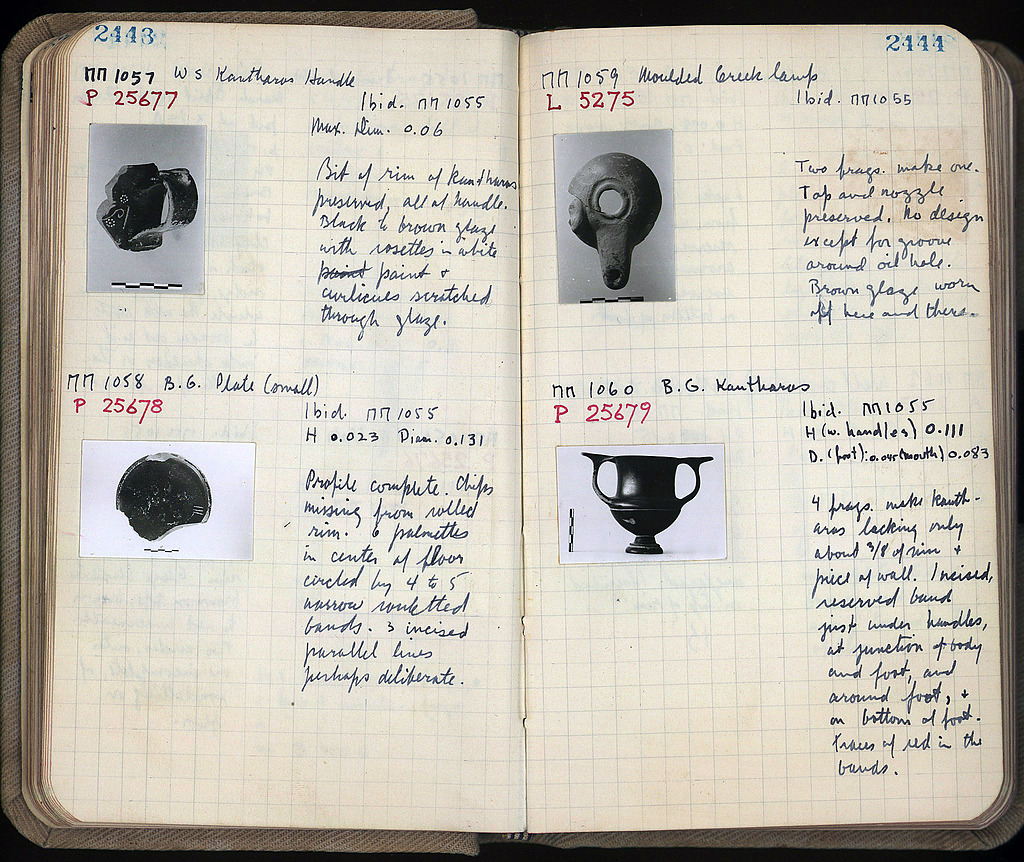 2443
ΠΠ 1057 W S Kantharos Handle
P 25677
Ibid. ΠΠ 1055
Max. Dim. 0.06
Bit of rim of kantharos
preserved, all of handle.
Black to brown glaze
with rosettes in white
paint paint +
curlicues scratched
through glaze.
ΠΠ 1058 B.G. Plate (small)
P 25678
Ibid. ΠΠ 1055
H 0.023 Diam. 0.131
Profile complete. Chips
missing from rolled
rim. 6 palmettes
in center of floor
circled by 4 to 5
narrow rouletted
bands. 3 incised
parallel lines
perhaps deliberate.
2444
ΠΠ 1059 Moulded Greek lamp
L 5275
Ibid. ΠΠ 1055
Two frags. make one.
Top and nozzle
preserved. No design
except for groove
around oil hole.
Brown glaze worn
off here and there.
ΠΠ 1060 B.G. Kantharos
P 25679
Ibid. ΠΠ 1055
H (w. handles) 0.111
D. (foot): 0.045 (mouth) 0.083
4 frags. make kanth-
aros lacking only
about 3/8 of rim +
piece of wall. Incised,
reserved band
just under handles,
at junction of body
and foot, and
around foot, +
on bottom of foot.
Traces of red in the
bands.